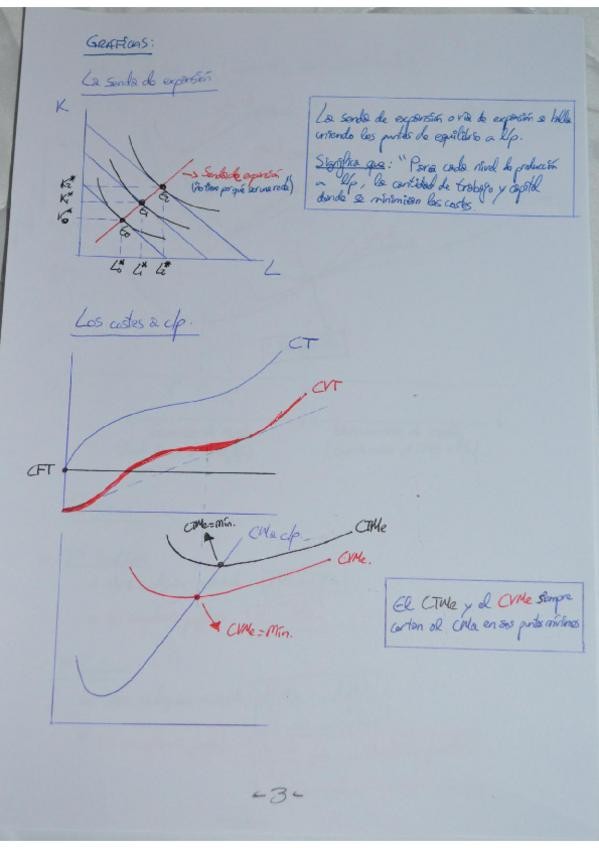 GRAFICAS:
La senda de expansión
K
La senda de expansión o vía de expansión se halla
uniendo los puntos de equilibrio a l/p.
Significa que: "Para cada nivel de producción
a l/p, la cantidad de trabajo y capital
donde se minimizan los costes
→ Senda de expansión
(no tiene por qué ser una recta)
E2
E1
E0
L0* L1* L2* L
Los costes a c/p.
CT
CVT
CFT
CTMe=mín. CMa c/p. CTMe
CVMe.
CVMe=Mín.
El CTMe y el CVMe siempre
cortan al CMa en sus puntos mínimos
-3-